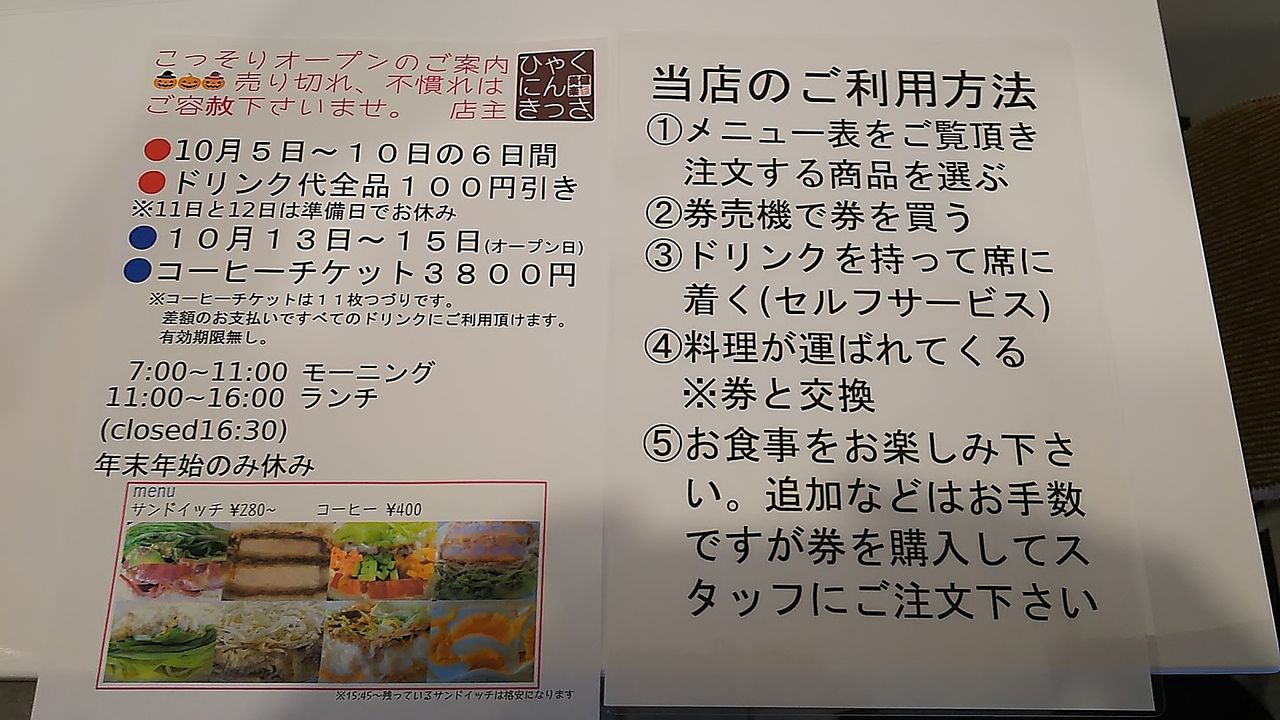 こっそりオープンのご案内
🎃🎃🎃 売り切れ、不慣れは
ご容赦下さいませ。 店主
ひゃく
にん
きっさ
●10月5日～10日の6日間
●ドリンク代全品100円引き
※11日と12日は準備日でお休み
●10月13日～15日(オープン日)
●コーヒーチケット3800円
※コーヒーチケットは11枚つづりです。
差額のお支払いですべてのドリンクにご利用頂けます。
有効期限無し。
7:00~11:00 モーニング
11:00~16:00 ランチ
(closed16:30)
年末年始のみ休み
menu
サンドイッチ ¥280~ コーヒー ¥400
※15:45~残っているサンドイッチは格安になります
当店のご利用方法
①メニュー表をご覧頂き
注文する商品を選ぶ
②券売機で券を買う
③ドリンクを持って席に
着く(セルフサービス)
④料理が運ばれてくる
※券と交換
⑤お食事をお楽しみ下さ
い。追加などはお手数
ですが券を購入してス
タッフにご注文下さい